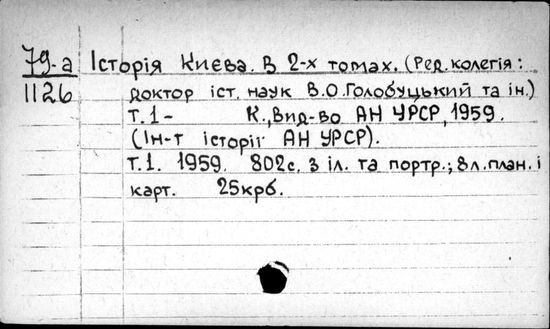 79-а Історія Києва. В 2-х томах. (Ред. колегія:
1126 доктор іст. наук В.О.Голобуцький та ін.)
т.1- К., Вид-во АН УРСР, 1959.
(Ін-т історії АН УРСР).
т.1. 1959. 802с. з іл. та портр.; 8л. план. і
карт. 25крб.